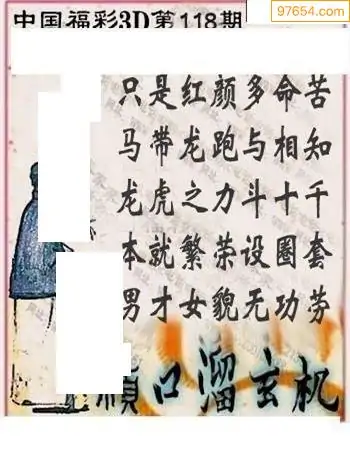 97654.com
中国福彩3D第118期
只是红颜多命苦
马带龙跑与相知
龙虎之力斗十千
本就繁荣设圈套
男才女貌无功劳
顺口溜玄机